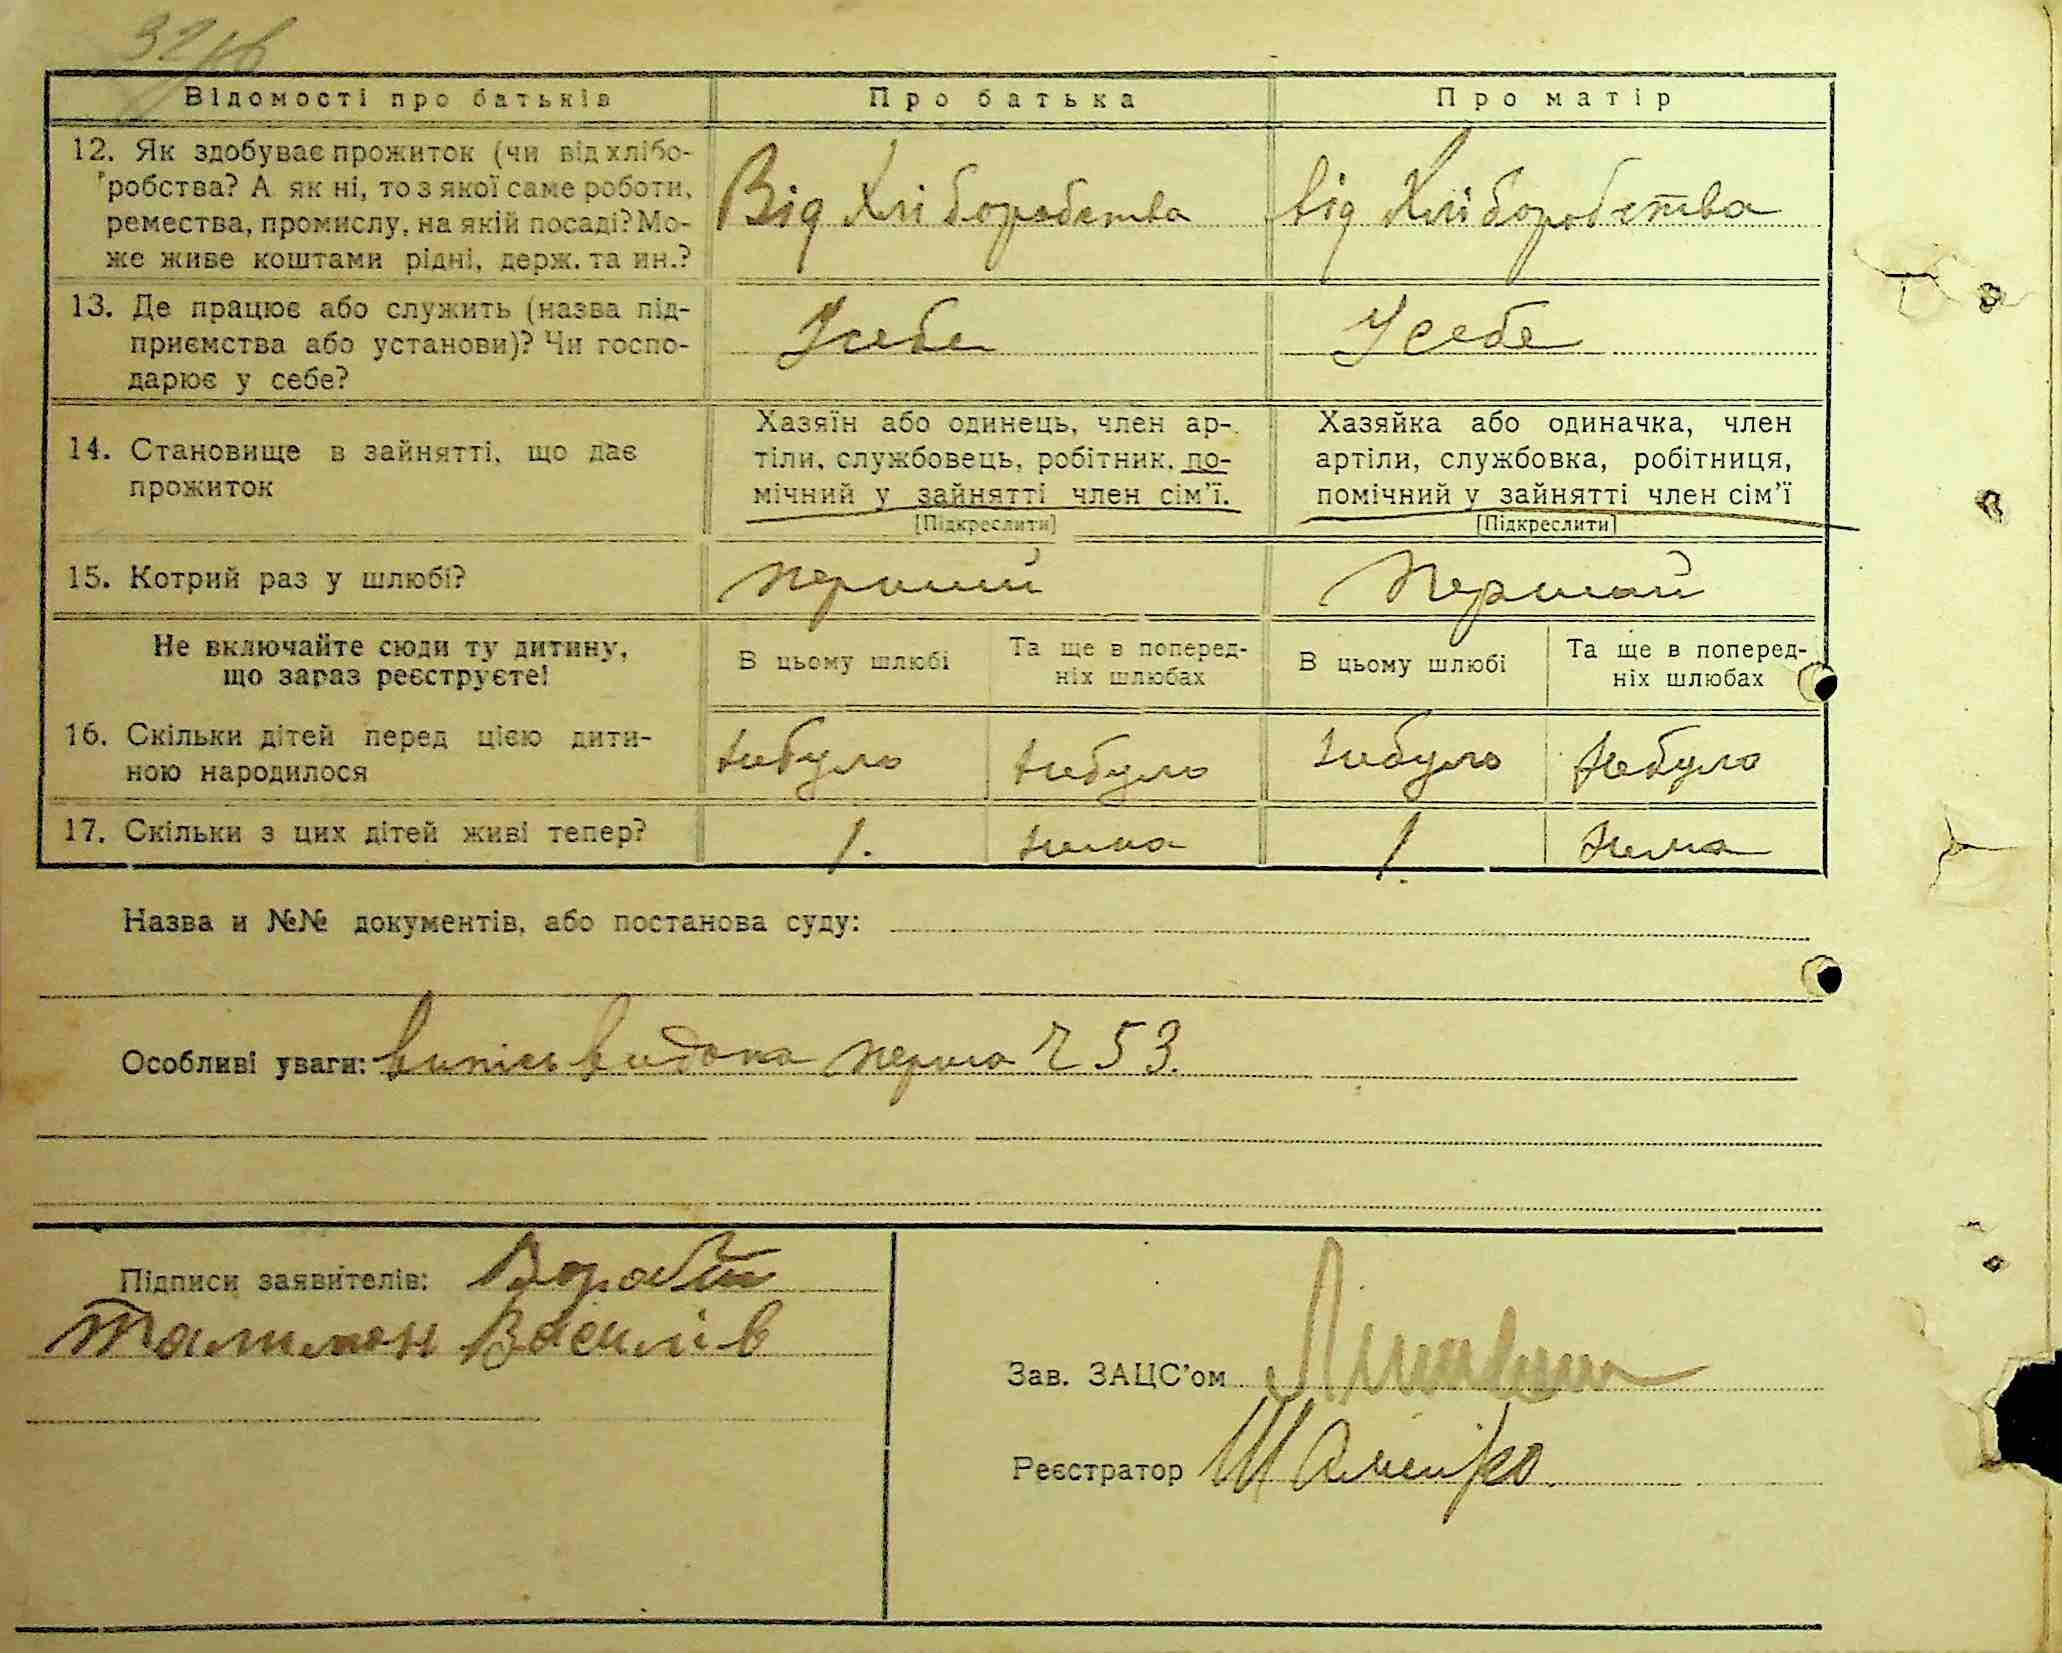 32
Відомості про батьків
Про батька
Про матір
12. Як здобуває прожиток (чи від хлібо-
робства? А як ні, то з якої саме роботи,
ремества, промислу, на якій посаді? Мо-
же живе коштами рідні, держ. та ин.?
Від Хліборобства
від Хліборобства
13. Де працює або служить (назва під-
приємства або установи)? Чи госпо-
дарює у себе?
Усебе
Усебе
14. Становище в зайнятті, що дає
прожиток
Хазяїн або одинець, член ар-
тіли, службовець, робітник, по-
мічний у зайнятті член сім'ї.
[Підкреслити]
Хазяйка або одиначка, член
артіли, службовка, робітниця,
помічний у зайнятті член сім'ї
[Підкреслити]
15. Котрий раз у шлюбі?
перший
Перший
Не включайте сюди ту дитину,
що зараз реєструєте!
В цьому шлюбі
Та ще в поперед-
ніх шлюбах
В цьому шлюбі
Та ще в поперед-
ніх шлюбах
16. Скільки дітей перед цією дити-
ною народилося
небуло
небуло
небуло
небуло
17. Скільки з цих дітей живі тепер?
1.
нема
1.
нема
Назва и №№ документів, або постанова суду:
Особливі уваги: випись видана перша 53.
Підписи заявителів:
Василів
Зав. ЗАЦС'ом
Реєстратор